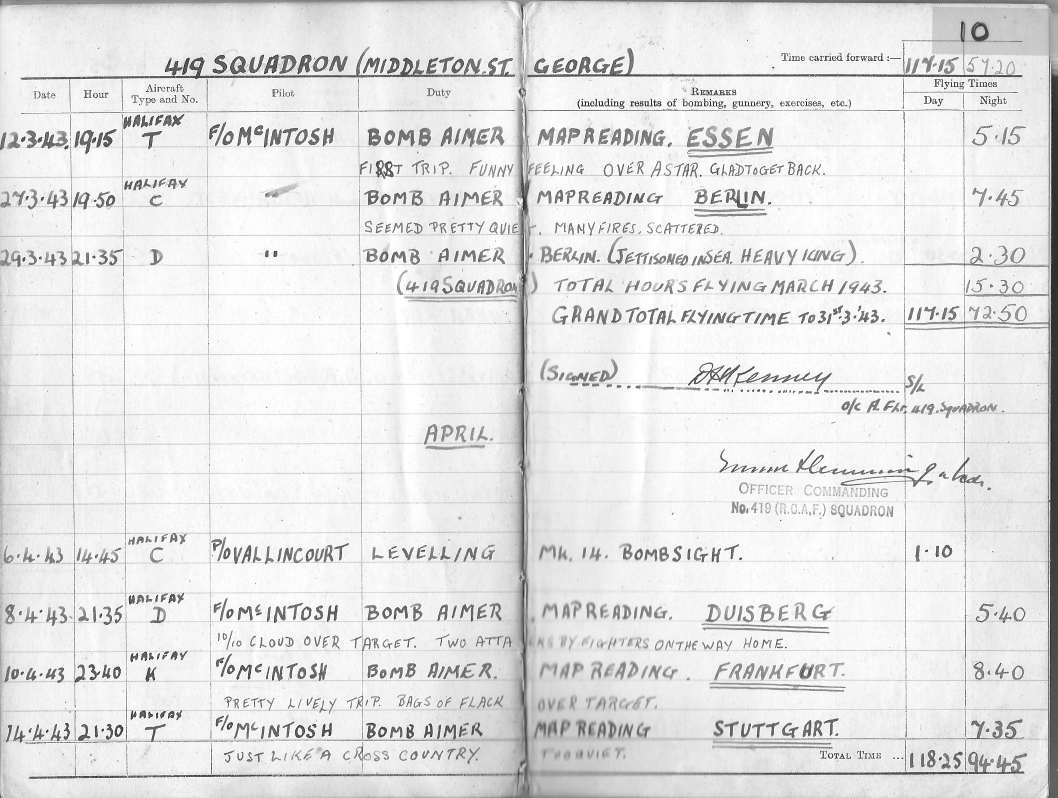 10
419 SQUADRON (MIDDLETON.ST. GEORGE) Time carried forward :— 117·15 57·20
Date Hour Aircraft Type and No. Pilot Duty REMARKS (including results of bombing, gunnery, exercises, etc.) Flying Times Day Night
12·3·43. 19·15 HALIFAX T F/O McINTOSH BOMB AIMER MAPREADING. ESSEN 5·15
FIRST TRIP. FUNNY FEELING OVER ASTAR. GLAD TO GET BACK.
27·3·43 19·50 HALIFAX C " BOMB AIMER MAPREADING BERLIN. 7·45
SEEMED PRETTY QUIET. MANY FIRES. SCATTERED.
29·3·43 21·35 D " BOMB AIMER BERLIN. (JETTISONED IN SEA. HEAVY ICING). 2·30
(419 SQUADRON) TOTAL HOURS FLYING MARCH 1943. 15·30
GRAND TOTAL FLYING TIME TO 31st·3·'43. 117·15 72·50
(SIGNED) S/L
O/C A. FLT. 419. SQUADRON.
APRIL.
OFFICER COMMANDING
No. 419 (R.C.A.F.) SQUADRON
6·4·43 14·45 HALIFAX C P/O VALLINCOURT LEVELLING MK. 14. BOMBSIGHT. 1·10
8·4·43. 21·35 HALIFAX D F/O McINTOSH BOMB AIMER MAPREADING. DUISBERG 5·40
10/10 CLOUD OVER TARGET. TWO ATTA KS BY FIGHTERS ON THE WAY HOME.
10·4·43 23·40 HALIFAX K F/O McINTOSH BOMB AIMER. MAP READING. FRANKFURT. 8·40
PRETTY LIVELY TRIP. BAGS OF FLACK OVER TARGET.
14·4·43 21·30 HALIFAX T F/O McINTOSH BOMB AIMER MAP READING STUTTGART. 7·35
JUST LIKE A CROSS COUNTRY. TOO QUIET.
TOTAL TIME ... 118·25 94·45